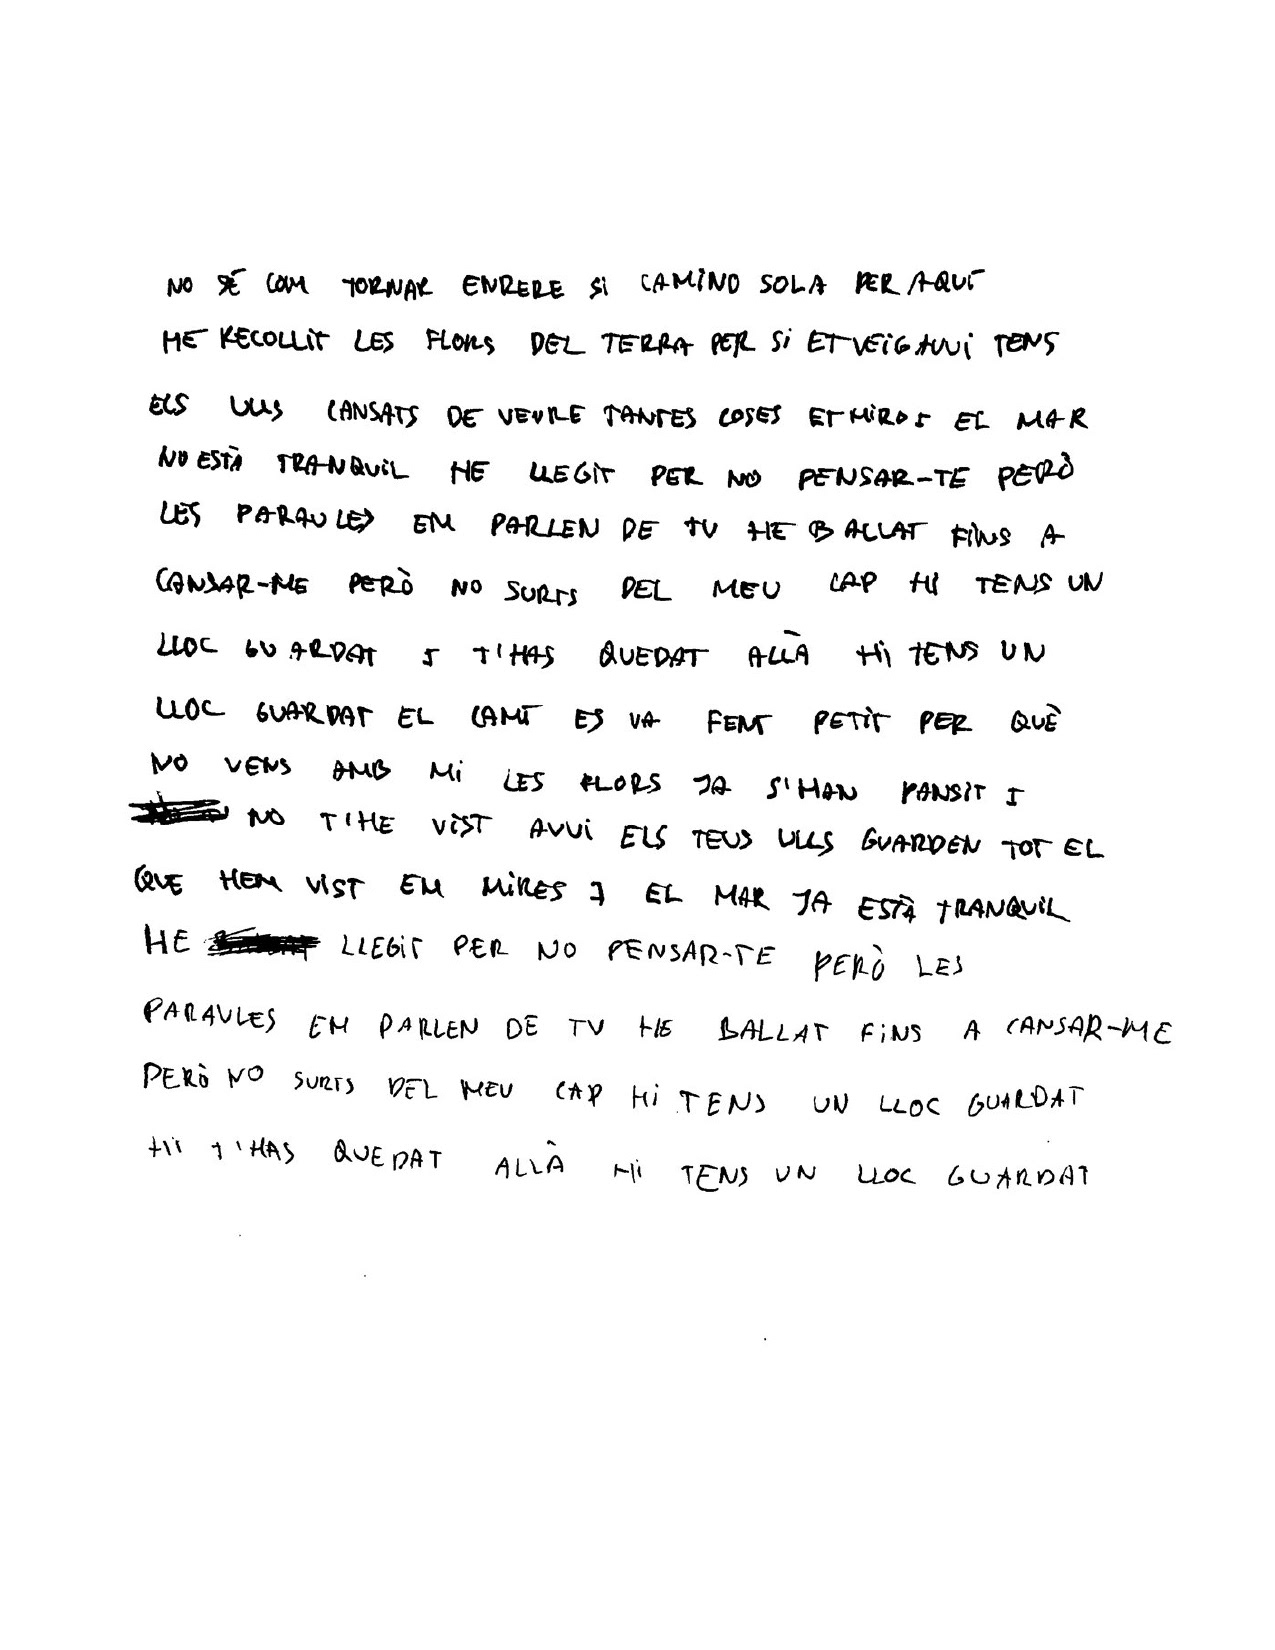 NO SÉ COM TORNAR ENRERE SI CAMINO SOLA PER AQUÍ
HE RECOLLIT LES FLORS DEL TERRA PER SI ET VEIG AVUI TENS
ELS ULLS CANSATS DE VEURE TANTES COSES ET MIRO I EL MAR
NO ESTÀ TRANQUIL HE LLEGIT PER NO PENSAR-TE PERÒ
LES PARAULES EM PARLEN DE TU HE BALLAT FINS A
CANSAR-ME PERÒ NO SURTS DEL MEU CAP HI TENS UN
LLOC GUARDAT I T'HAS QUEDAT ALLÀ HI TENS UN
LLOC GUARDAT EL CAMÍ ES VA FENT PETIT PER QUÈ
NO VENS AMB MI LES FLORS JA S'HAN PANSIT I
NO T'HE VIST AVUI ELS TEUS ULLS GUARDEN TOT EL
QUE HEM VIST EM MIRES I EL MAR JA ESTÀ TRANQUIL
HE LLEGIT PER NO PENSAR-TE PERÒ LES
PARAULES EM PARLEN DE TU HE BALLAT FINS A CANSAR-ME
PERÒ NO SURTS DEL MEU CAP HI TENS UN LLOC GUARDAT
HI T'HAS QUEDAT ALLÀ HI TENS UN LLOC GUARDAT